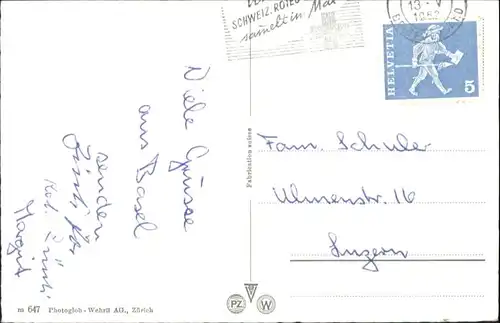 SCHWEIZ. ROTES
sammelt im Mai
13. V.
HELVETIA
5
Viele Grüsse
aus Basel
senden
Margrit
Fabrication suisse
Fam. Schuler
Ulmenstr. 16
Luzern
m 647 Photoglob-Wehrli AG., Zürich
PZ W